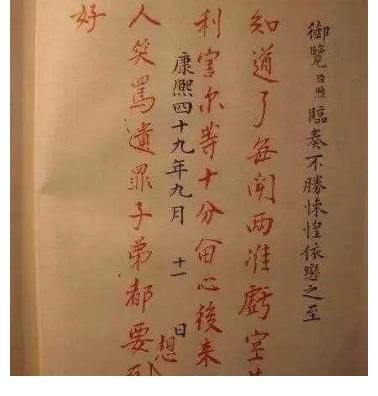 御覽臣煦臨奏不勝悚惶依戀之至
知道了每聞兩淮虧空
利害尔等十分留心後来
康熙四十九年九月 十一 日
人笑罵遺罪子弟都要想
好